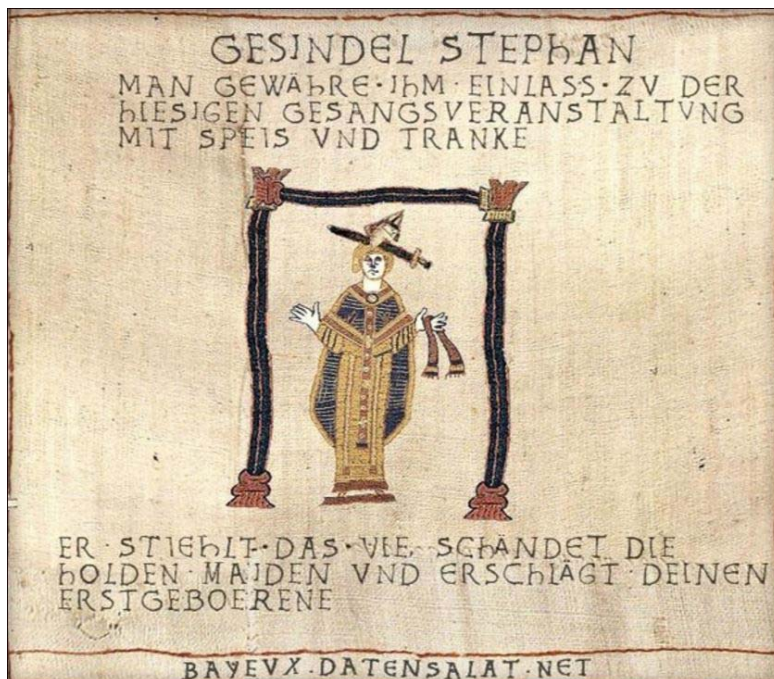 GESINDEL STEPHAN
MAN GEWÄHRE·IHM·EINLASS·ZV DER
HIESIGEN GESANGSVERANSTALTVNG
MIT SPEIS VND TRANKE
ER·STIEHLT·DAS·VIE, SCHÄNDET DIE
HOLDEN·MAIDEN VND ERSCHLÄGT·DEINEN
ERSTGEBOERENE
BAYEVX.DATENSALAT.NET